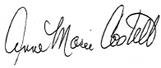 Anne Marie Costello